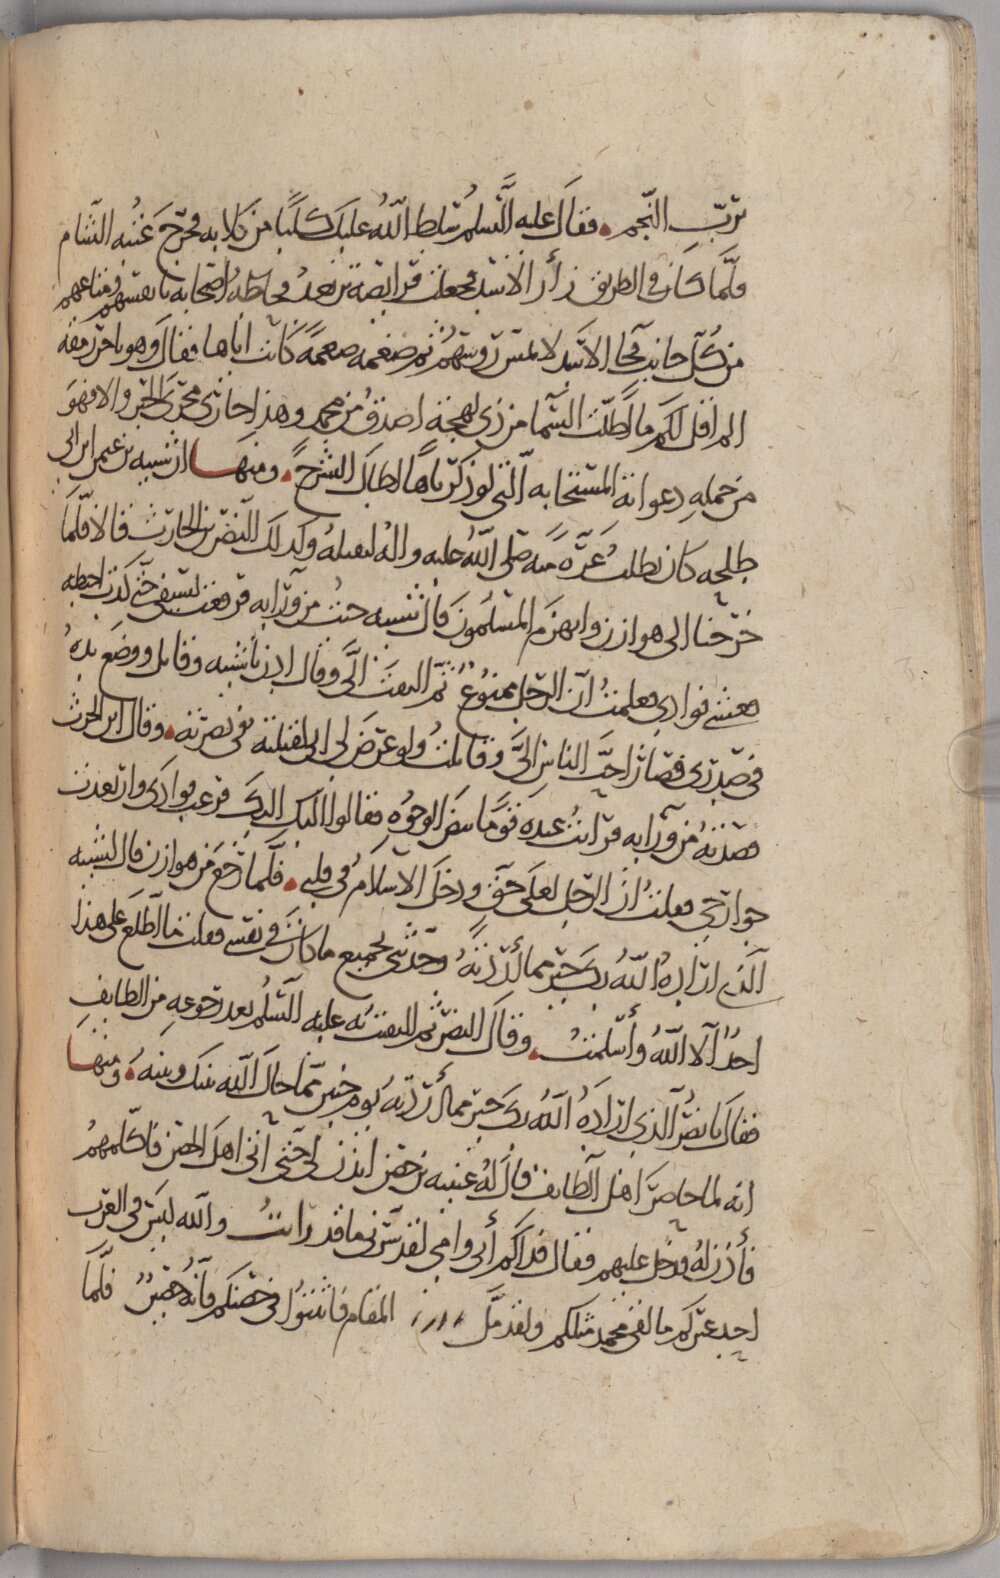 بربّ النّجم فقال عليه السّلم سلط الله عليك كلبا من كلابه فخرج عتبه الى الشام
فلمّا كان في الطريق زأر الاسد فجعلت فرايصه ترتعد فحاطه اصحابه بانفسهم ومتاعهم
من كلّ جانب فجا الاسد روسهم ثم ضغمه ضغمة كانت اياها فقال وهو باخر رمقه
الم اقل لكم ما اظلّت السّما من ذي لهجة اصدق من محمد وهذا جار مجرى الخبر والا فهو
من جمله دعواته المستجابه الّتي لو ذكرناها لطال الشرح ومنها ان شيبه بن عثمن ابن ابي
طلحه كان يطلب غرّة منه صلى الله عليه واله ليقتله وكذلك النضر بن الحارث قالا فلمّا
خرجنا الى هوازن وانهزم المسلمون قال شيبه جئت من ورايه فرفعت لسيفي حتى كدت احطه
فغشي فوادي فعلمت ان الرجل ممنوع ثم التفت الىّ وقال ادن يا شيبه وقاتل ووضع يده
في صدري فصار احبّ الناس الىّ وقاتلت ولو عرض لي ابي لقتلته في نصرته وقال ابن الحرث
قصدته من ورايه فرايت عنده قومًا بيض الوجوه فقالوا اليك اليك فرعب فوادي وارتعدت
جوارحي فعلمت ان الرجل لعلى حق ودخل الاسلام في قلبي فلمّا رجع من هوازن قال لشيبه
الّذي اراده الله بك خير مما اردته وحدّثني بجميع ما كان في نفسي فعلمت ما اطّلع على هذا
احدٌ الّا الله وأسلمت وقال النضر ثم التفت عليه السّلم بعد رجوعه من الطايف
فقال يا نضر الّذي اراده الله بك خير مما أردته يوم حنين ممّا حال الله بينك وبينه ومنها
انه لما حاصر اهل الطايف قال له عتبه بن حصن ائذن لي حتى آتي اهل الحصن فاكلمهم
فأذن له فدخل عليهم فقال فداكم أبي وامي لقد سرّني ما قد رايت والله ليس في العرب
احد غيركم ما لقي محمد مثلكم ولقد ملّ المقام فاثبتوا في حصنكم فانّه حصين فلمّا